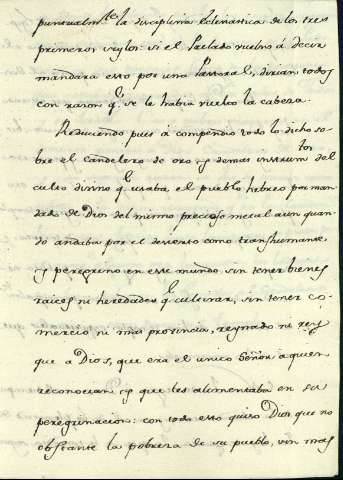 puntualm.te la disciplina Eclesiastica de los tres
primeros siglos: si el Prelado vuelvo á decir
mandara esto por una Pastoral, dirian todos
con razon q.e se le habia vuelto la cabeza.
Reduciendo pues á compendio todo lo dicho so-
bre el candelero de oro, y demas instrum.tos del
culto divino q.e usaba, el pueblo hebreo por man-
dado de Dios del mismo precioso metal aun quan-
do andaba por el desierto como transhumante,
y peregrino en este mundo sin tener bienes
raices ni heredades q.e cultivar, sin tener co-
mercio ni mas provincia, reynado ni rey
que a Dios, que era el unico Señor a quien
reconocian, y que les alimentaba en su
peregrinacion: con todo esto quiso Dios que no
obstante la pobreza de su pueblo, sin mas